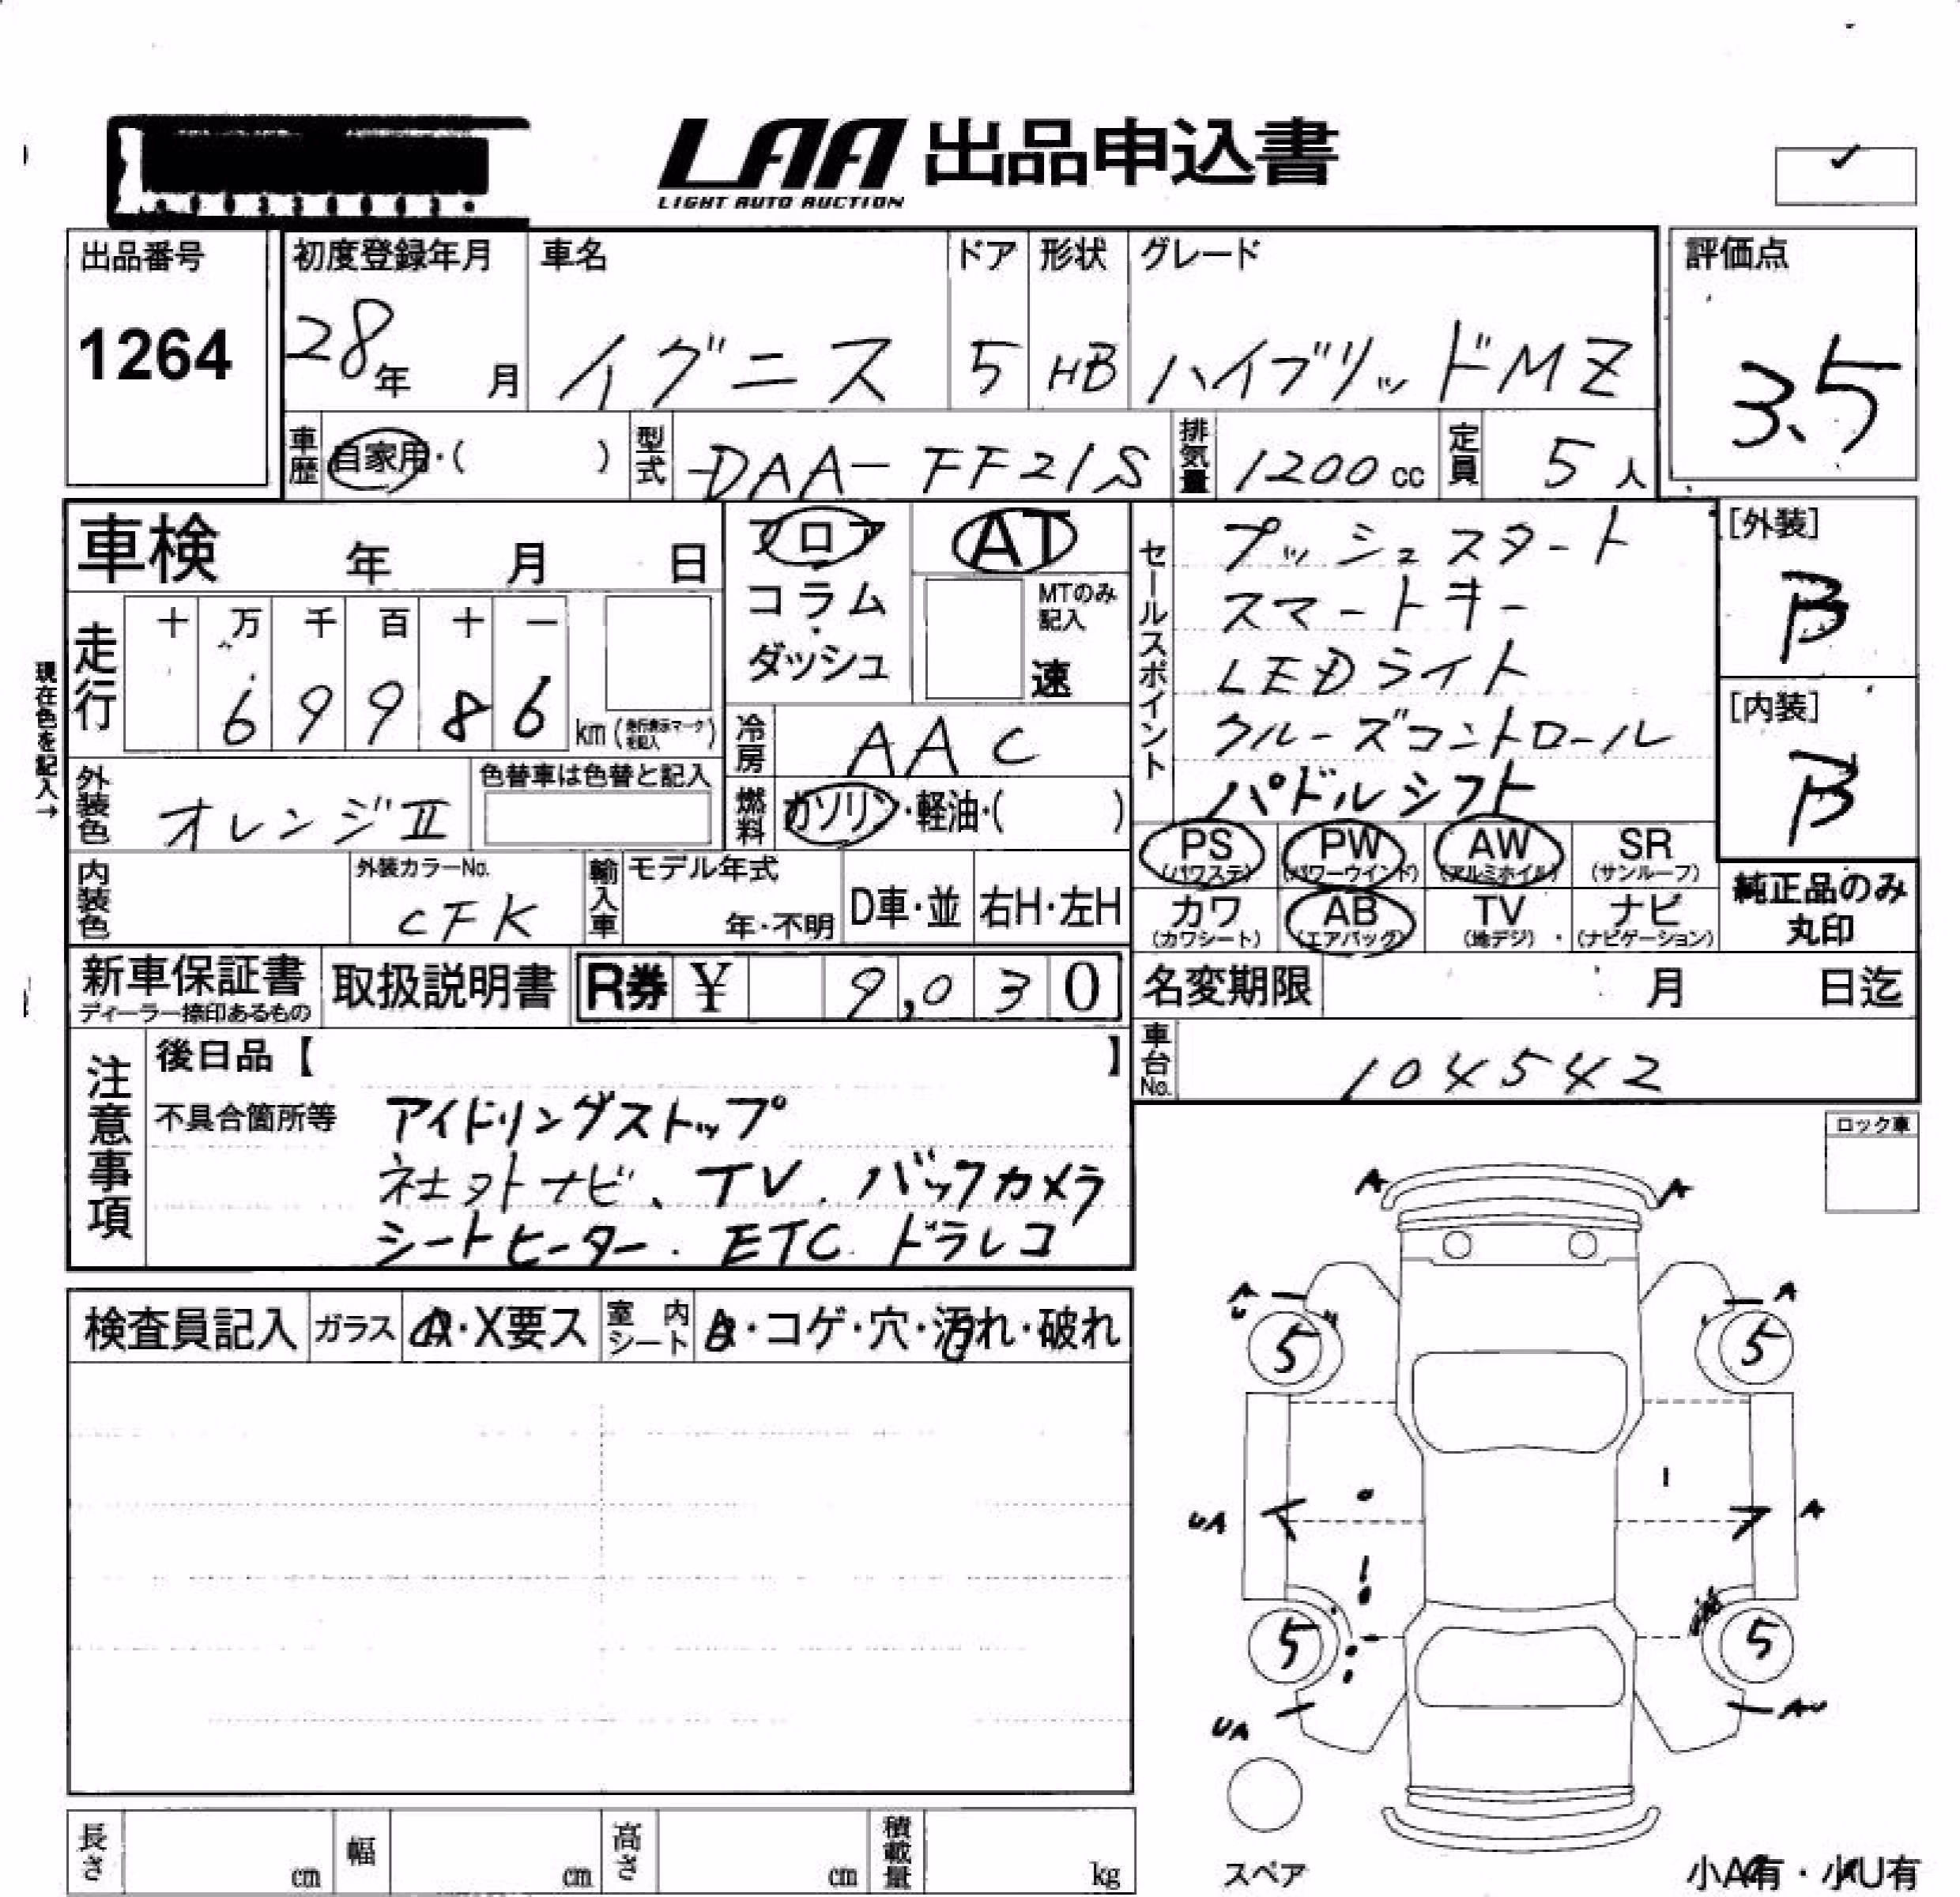 LAA 出品申込書
LIGHT AUTO AUCTION
出品番号
1264
初度登録年月
28年 月
車名
イグニス
ドア
5
形状
HB
グレード
ハイブリッドMZ
評価点
3.5
車歴
自家用・( )
型式
DAA-FF21S
排気量
1200cc
定員
5人
車検 年 月 日
フロア・コラム・ダッシュ
AT
MTのみ記入
速
セールスポイント
プッシュスタート
スマートキー
LEDライト
クルーズコントロール
パドルシフト
[外装]
B
[内装]
B
現在色を記入→
走行
十 万 千 百 十 一
6 9 9 8 6
km (走行表示マークを記入)
冷房
AAC
外装色
オレンジII
色替車は色替と記入
燃料
ガソリン・軽油・( )
PS (パワステ)
PW (パワーウインド)
AW (アルミホイル)
SR (サンルーフ)
カワ (カワシート)
AB (エアバッグ)
TV (地デジ)
ナビ (ナビゲーション)
純正品のみ
丸印
内装色
外装カラーNo.
CFK
輸入車
モデル年式
年・不明
D車・並
右H・左H
新車保証書
ディーラー捺印あるもの
取扱説明書
R券 ¥ 9,030
名変期限 月 日迄
車台No.
104542
注意事項
後日品【 】
不具合箇所等
アイドリングストップ
社外ナビ、TV、バックカメラ
シートヒーター. ETC. ドラレコ
ロック車
検査員記入
ガラス
・X要ス
室内シート
・コゲ・穴・汚れ・破れ
A
A
A
U
A
5
5
UA
A
5
5
UA
AU
スペア
小A有・小U有
長さ cm
幅 cm
高さ cm
積載量 kg